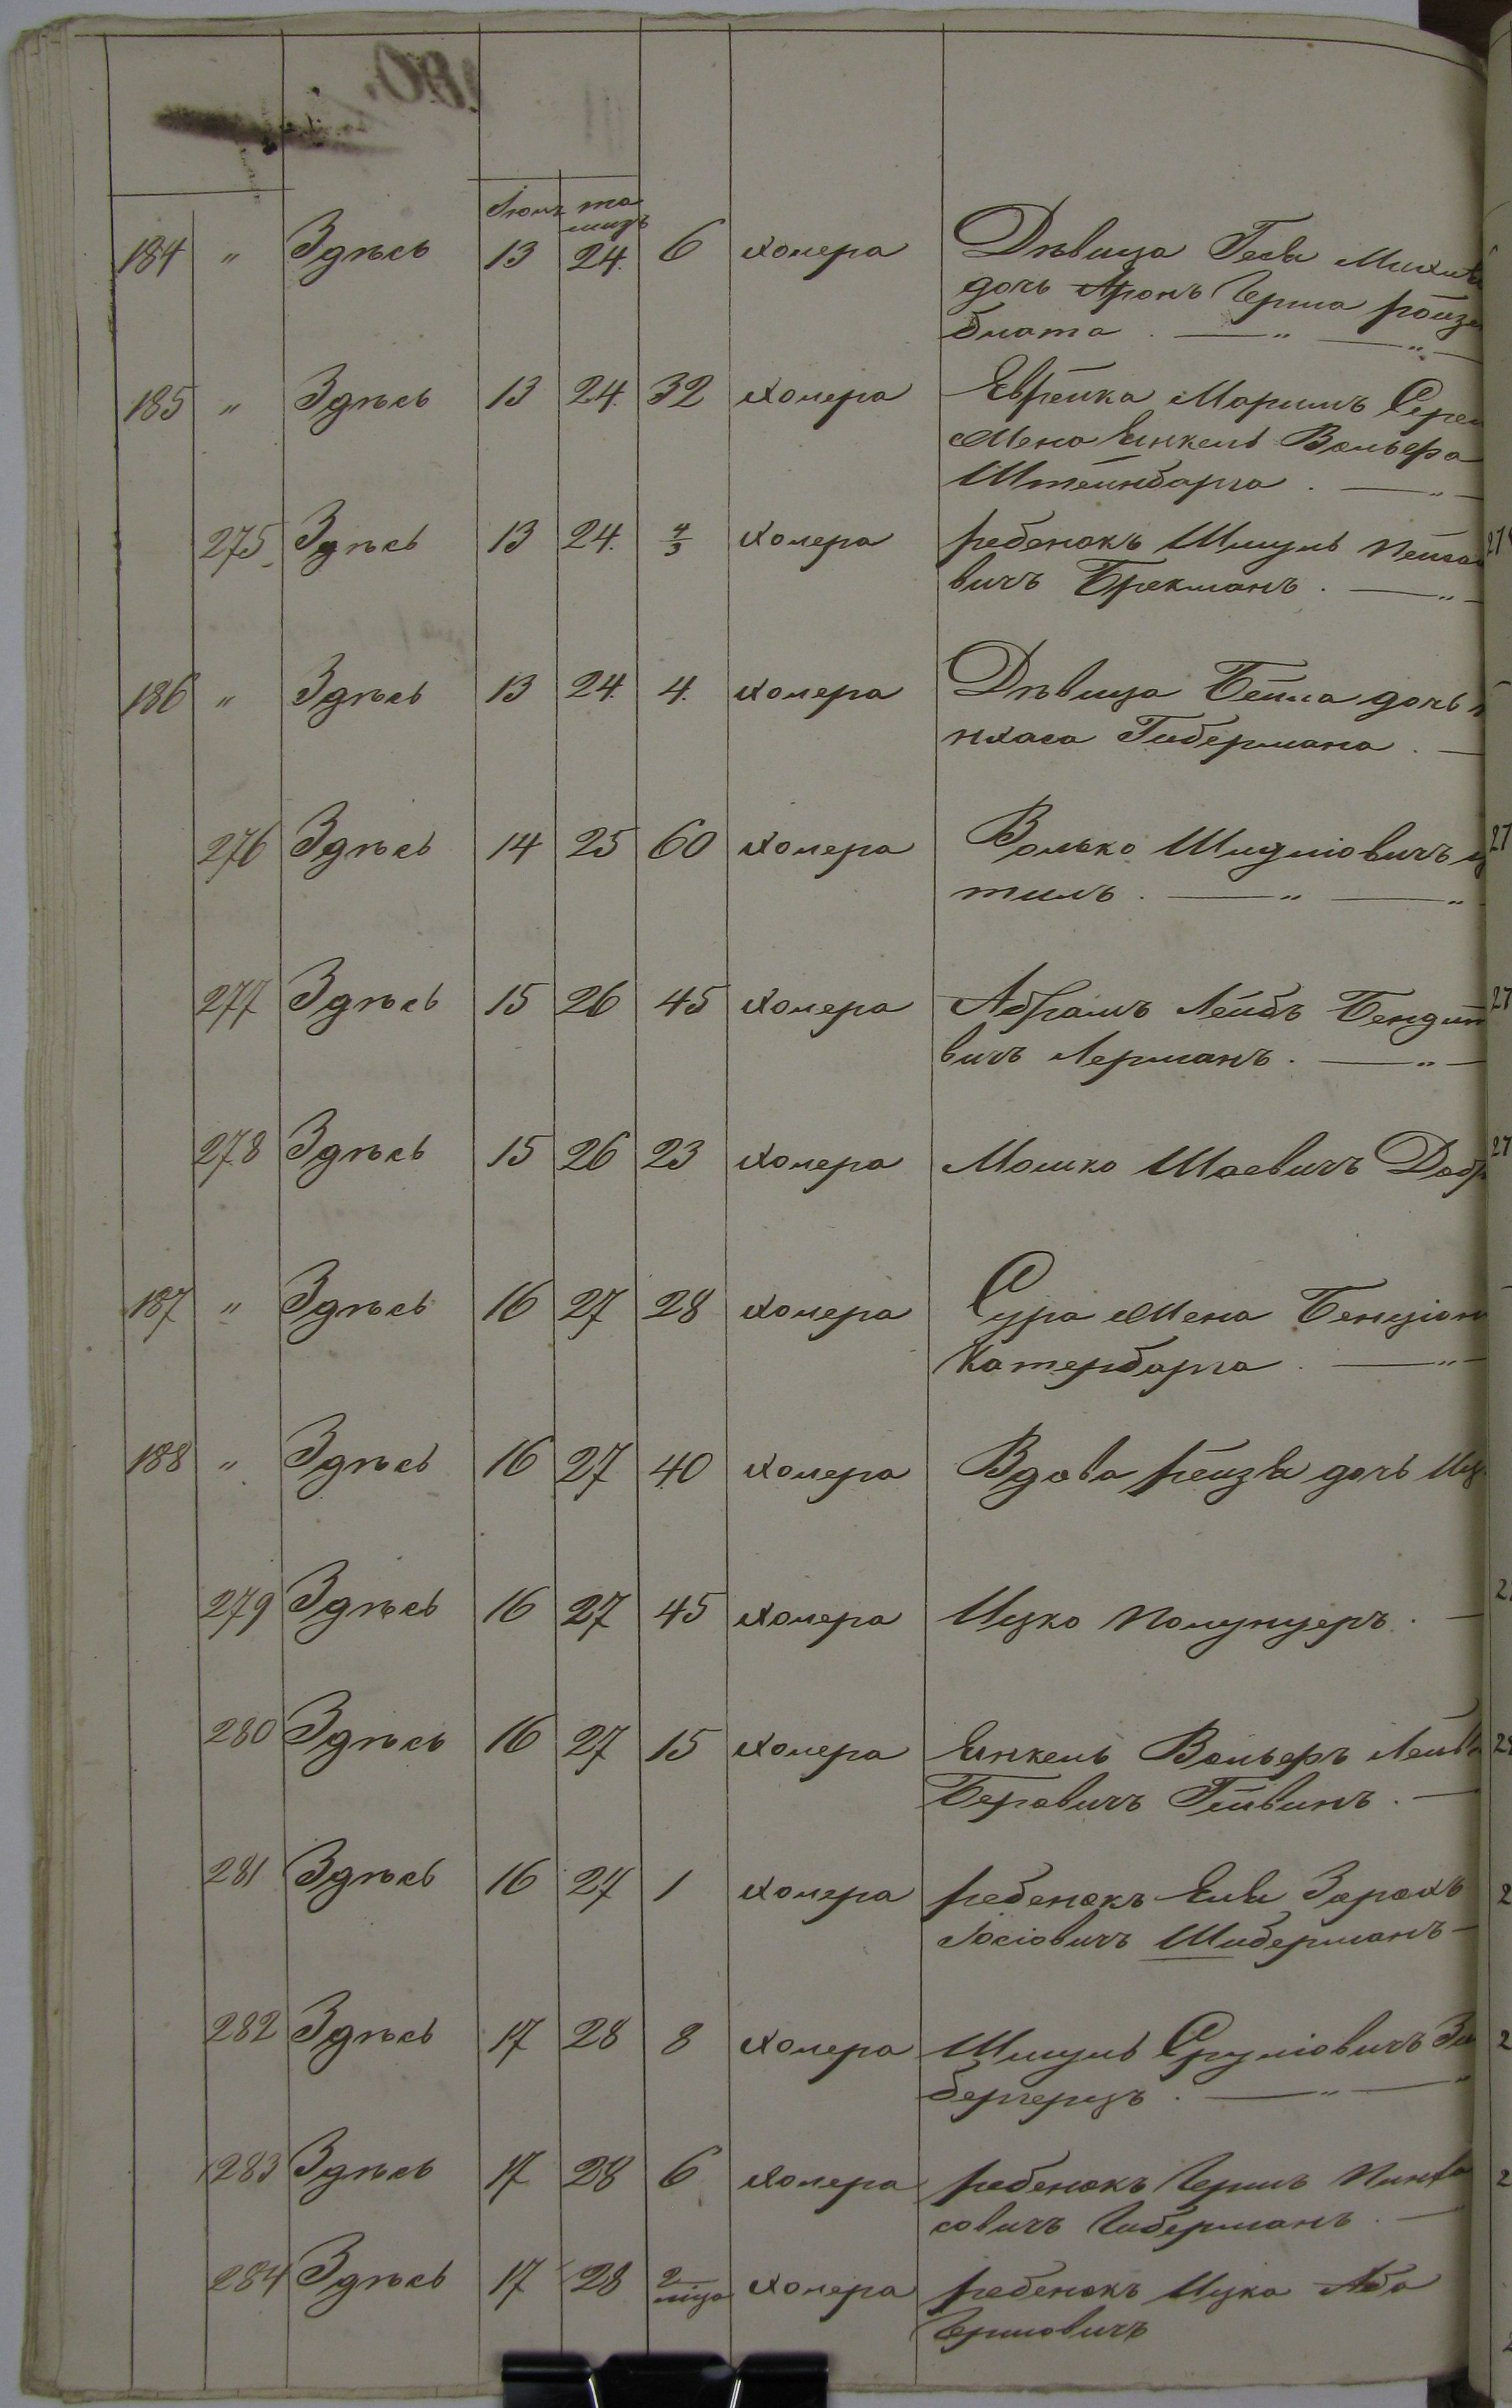 Іюнь та
музъ
184 " Здѣсь 13 24. 6 холера Дѣвица Геля
дочь Аронъ Герша Ройз
блата . — " — " —
185 " Здѣсь 13 24. 32 холера Еврейка Маримъ
жена Янкель Вольфа
Штейнбарга . — " —
275 Здѣсь 13 24. 4/5 холера ребенокъ Шмуль
вичъ Брекманъ . — " —
186 " Здѣсь 13 24. 4. холера Дѣвица Бейла дочь
нхаса Гибермана . —
276 Здѣсь 14 25 60 холера Волько Шмуліовичъ
тиль . — " — "
277 Здѣсь 15 26 45 холера Абрамъ Лейбъ Бендит
вичъ Лерманъ . — " —
278 Здѣсь 15 26 23 холера Мошко Шаевичъ Добр
187 " Здѣсь 16 27 28 холера Сура жена Бенціон
Катербарга . — " —
188 " Здѣсь 16 27 40 холера Вдова Рейзя дочь Иц
279 Здѣсь 16 27 45 холера Ицко . —
280 Здѣсь 16 27 15 холера Янкель Вольфъ Лейб
Беровичъ Гейвинъ . —
281 Здѣсь 16 27 1 холера ребенокъ Еля Зорохъ
Іосіовичъ Шиберманъ —
282 Здѣсь 17 28 8 холера Шмуль Сруліовичъ
бергерцъ . — " — "
283 Здѣсь 17 28 6 холера ребенокъ Гершъ Пинха
совичъ Гиберманъ . —
284 Здѣсь 17 28 2 мѣца холера ребенокъ Ицко Аба
Гершовичъ